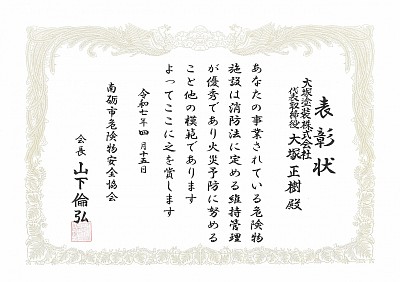 表彰状
大塚塗装株式会社
代表取締役 大塚 正樹 殿
あなたの事業されている危険物
施設は消防法に定める維持管理
が優秀であり火災予防に努める
こと他の模範であります
よってここに之を賞します
令和七年四月十五日
南砺市危険物安全協会
会長 山下 倫弘